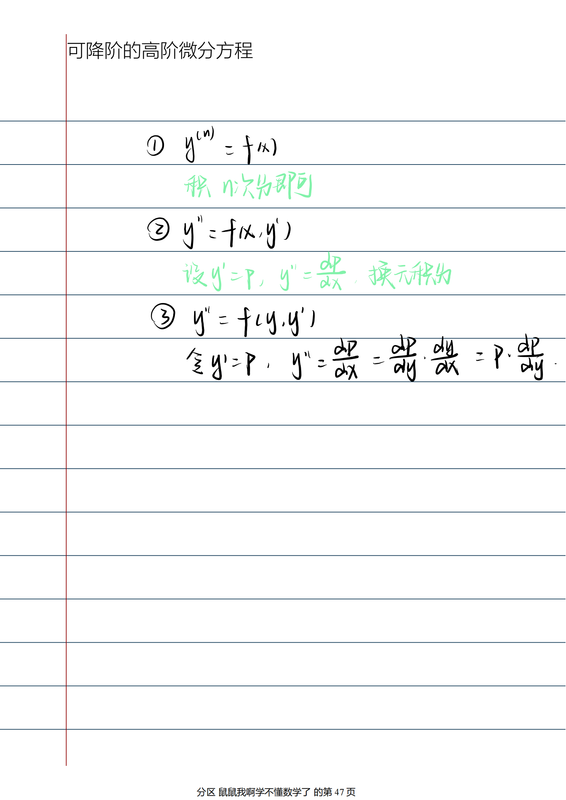 可降阶的高阶微分方程
① y⁽ⁿ⁾ = f(x)
积 n次分即可
② y'' = f(x, y')
设 y' = p, y'' = dp/dx . 换元积分
③ y'' = f(y, y')
令 y' = p, y'' = dp/dx = dp/dy · dy/dx = p · dp/dy .
分区 鼠鼠我啊学不懂数学了 的第 47 页